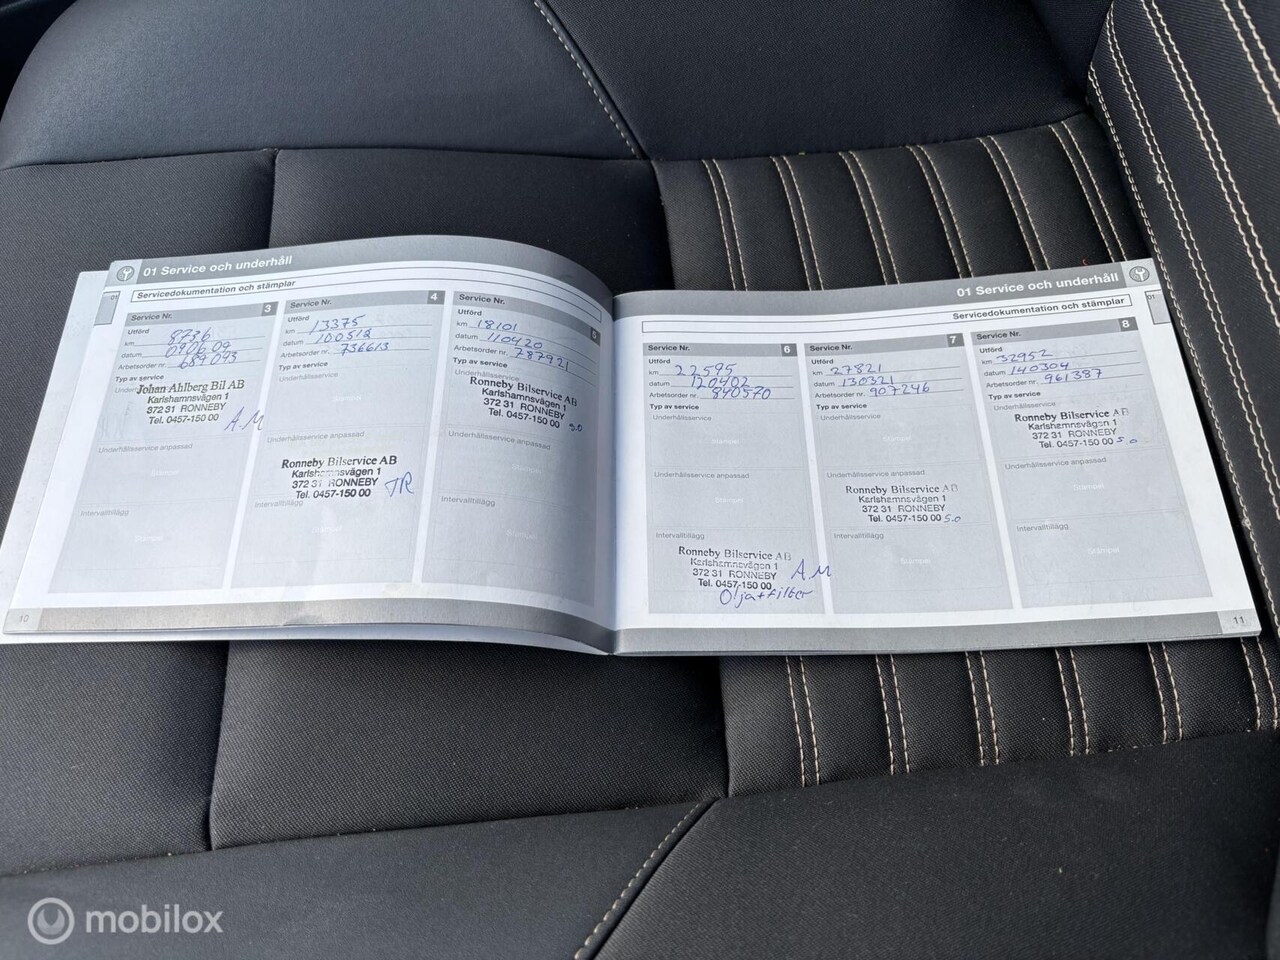 01 Service och underhåll
Servicedokumentation och stämplar
Service Nr. 3
Utförd
km 8736
datum
Arbetsorder nr. 689093
Typ av service
Johan Ahlberg Bil AB
Karlshamnsvägen 1
372 31 RONNEBY
Tel. 0457-150 00
A.M
Underhållsservice anpassad
Stämpel
Intervalltillägg
Stämpel
10
Service Nr. 4
Utförd
km 13375
datum 100512
Arbetsorder nr. 736613
Typ av service
Underhållsservice
Stämpel
Underhållsservice anpassad
Ronneby Bilservice AB
Karlshamnsvägen 1
372 31 RONNEBY
Tel. 0457-150 00
Intervalltillägg
Stämpel
Service Nr. 5
Utförd
km 18101
datum 110420
Arbetsorder nr. 787921
Typ av service
Underhållsservice
Ronneby Bilservice AB
Karlshamnsvägen 1
372 31 RONNEBY
Tel. 0457-150 00
Underhållsservice anpassad
Stämpel
Intervalltillägg
Stämpel
01 Service och underhåll
01
Servicedokumentation och stämplar
Service Nr. 6
Utförd
km 22595
datum 120402
Arbetsorder nr. 840570
Typ av service
Underhållsservice
Stämpel
Underhållsservice anpassad
Stämpel
Intervalltillägg
Ronneby Bilservice AB
Karlshamnsvägen 1
372 31 RONNEBY
Tel. 0457-150 00
A.M
Olja+filter
Service Nr. 7
Utförd
km 27821
datum 130321
Arbetsorder nr. 907246
Typ av service
Underhållsservice
Stämpel
Underhållsservice anpassad
Ronneby Bilservice AB
Karlshamnsvägen 1
372 31 RONNEBY
Tel. 0457-150 00 S.O
Intervalltillägg
Stämpel
Service Nr. 8
Utförd
km 32952
datum 140304
Arbetsorder nr. 961387
Typ av service
Underhållsservice
Ronneby Bilservice AB
Karlshamnsvägen 1
372 31 RONNEBY
Tel. 0457-150 00 S.O
Underhållsservice anpassad
Stämpel
Intervalltillägg
Stämpel
11
mobilox